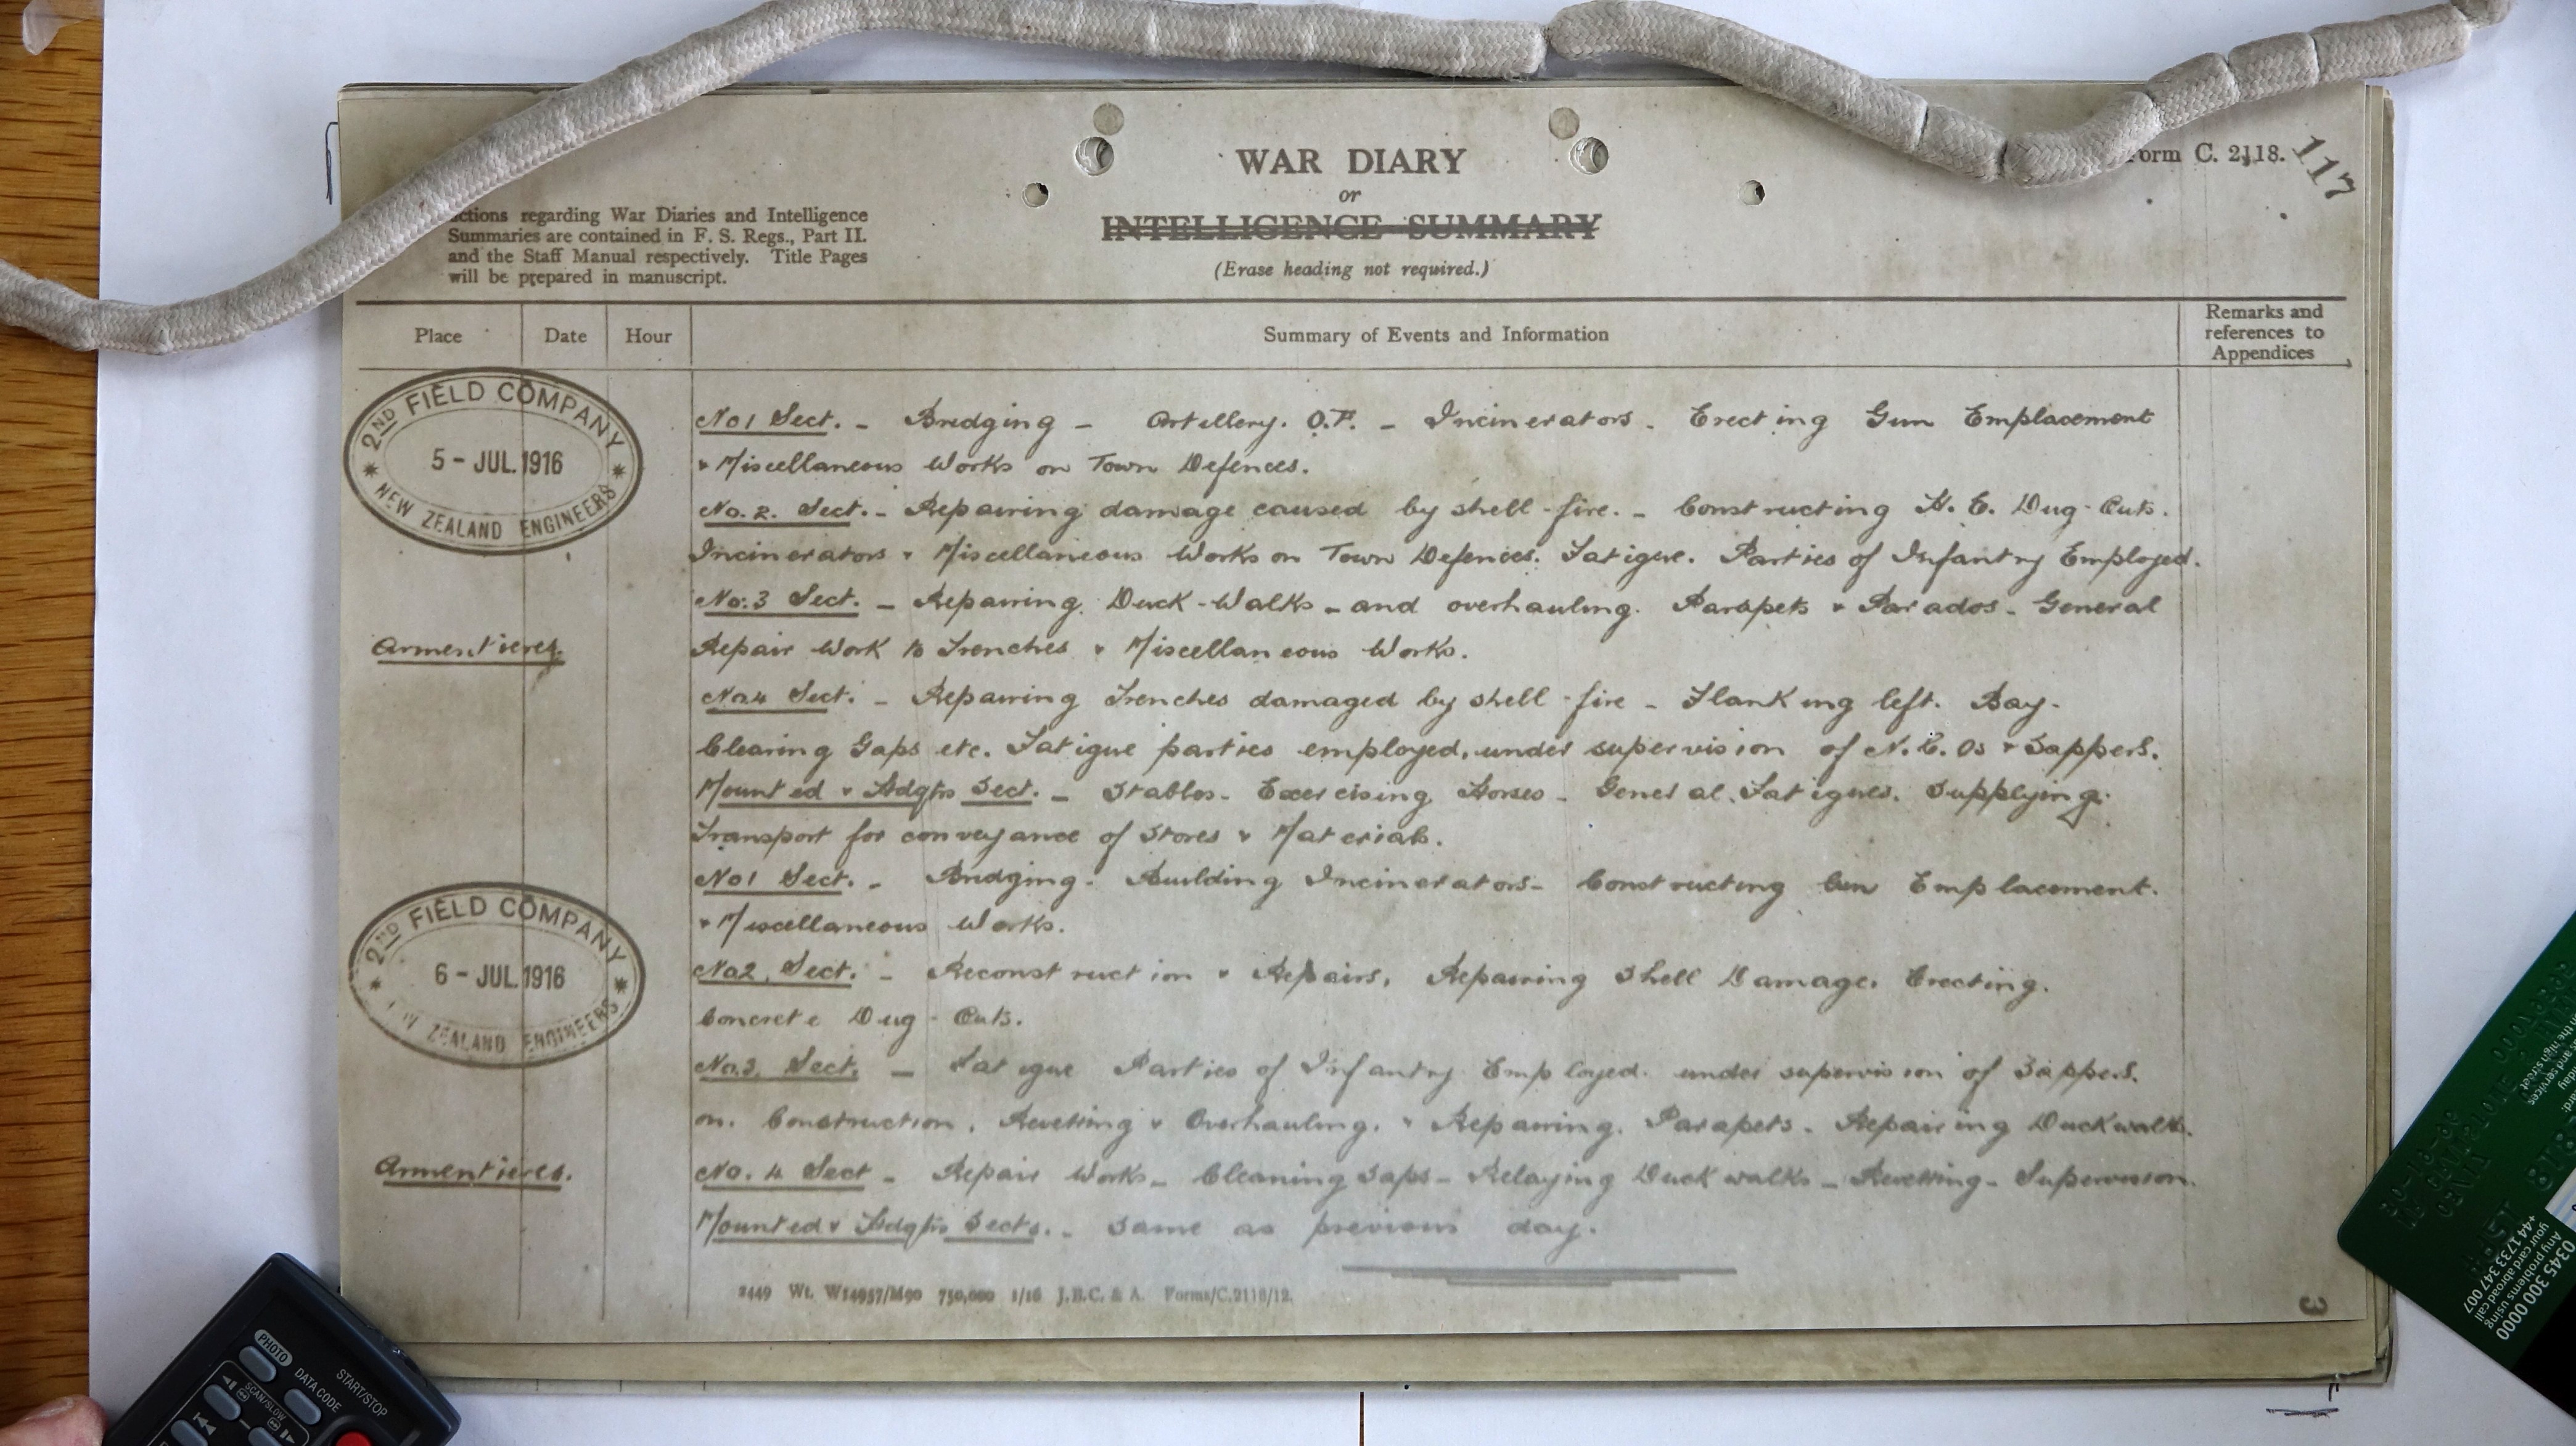 WAR DIARY
or
INTELLIGENCE SUMMARY
(Erase heading not required.)
orm C. 2118.
117
ctions regarding War Diaries and Intelligence
Summaries are contained in F. S. Regs., Part II.
and the Staff Manual respectively. Title Pages
will be prepared in manuscript.
Place Date Hour Summary of Events and Information Remarks and
references to
Appendices
2ND FIELD COMPANY
5 - JUL. 1916
NEW ZEALAND ENGINEERS
No 1 Sect. - Bridging - Artillery. O.P. - Incinerators. Erecting Gun Emplacement
& Miscellaneous Works on Town Defences.
No. 2. Sect. - Repairing damage caused by shell-fire. - Constructing H. E. Dug-Outs.
Incinerators & Miscellaneous Works on Town Defences. Fatigue. Parties of Infantry Employed.
No. 3 Sect. - Repairing Duck-Walks - and overhauling. Parapets & Parados - General
Armentieres.
Repair Work to Trenches & Miscellaneous Works.
No. 4 Sect. - Repairing Trenches damaged by shell-fire - Flanking left. Bay.
Clearing Gaps etc. Fatigue parties employed, under supervision of N.C.Os & Sappers.
Mounted & Hdqtrs Sect. - Stables - Exercising Horses - General Fatigues. Supplying
Transport for conveyance of Stores & Materials.
2ND FIELD COMPANY
6 - JUL. 1916
ZEALAND ENGINEERS
No 1 Sect. - Bridging - Building Incinerators - Constructing Gun Emplacement.
& Miscellaneous Works.
No 2. Sect. - Reconstruction & Repairs, Repairing Shell Damage. Erecting.
Concrete Dug-Outs.
No. 3. Sect. - Fatigue Parties of Infantry Employed. under supervision of Sappers.
on. Construction. Revetting & Overhauling. & Repairing. Parapets. Repairing Duckwalks.
Armentieres.
No. 4 Sect - Repair Works - Cleaning Saps - Relaying Duckwalks - Revetting - Supervision.
Mounted & Hdqtrs Sects. - Same as previous day.
2449 Wt. W14957/M90 750,000 1/16 J.B.C. & A. Forms/C.2118/12.
3
PHOTO
DATA CODE
START/STOP
SCAN/SLOW
0345 300 0000
Any problems using
your card abroad call
+44 1733 347 007